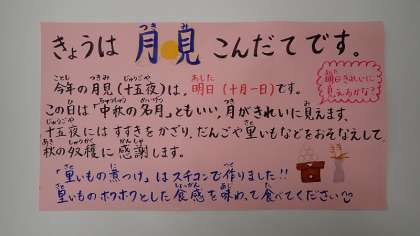 きょうは 月見 こんだてです。
今年の月見(十五夜)は、明日(十月一日)です。
この日は「中秋の名月」ともいい、月がきれいに見えます。
十五夜には すすきをかざり、だんごや里いもなどをおそなえして、
秋の収穫に感謝します。
「里いもの煮つけ」はスチコンで作りました!!
里いものホクホクとした食感を味わって食べてください
明日きれいに
見えるかな?